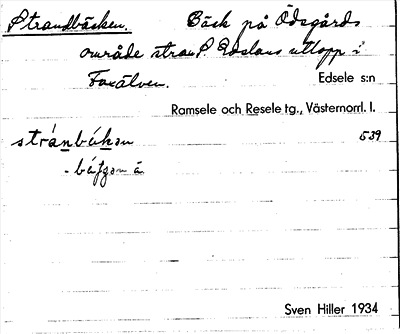 Strandbäcken. Bäck på Ödsgårds
område strax S. Edslans utlopp i
Faxälven. Edsele s:n
Ramsele och Resele tg., Västernorrl. l.
stránbäkən 539
Sven Hiller 1934